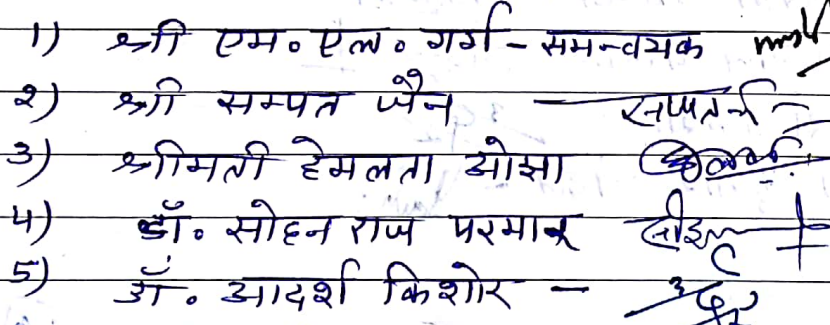 1) श्री एम० एल० गर्ग - समन्वयक
२) श्री सम्पत जैन -
3) श्रीमती हेमलता ओझा
4) डॉ० सोहन राज परमार
5) डॉ० आदर्श किशोर -